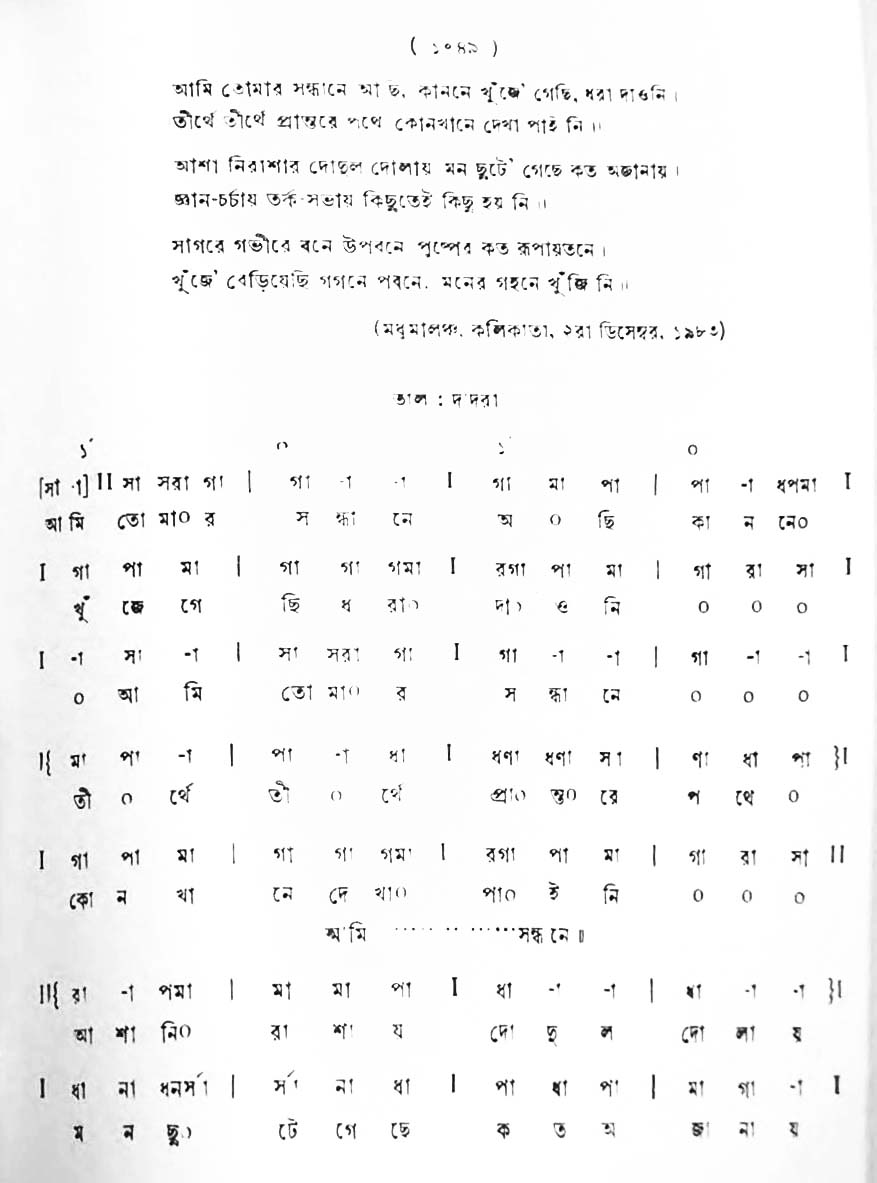 ( ১০৪৯ )
আমি তোমার সন্ধানে আছি, কাননে খুঁজে' গেছি, ধরা দাওনি।
তীর্থে তীর্থে প্রান্তরে পথে কোনখানে দেখা পাই নি॥
আশা নিরাশার দোদুল দোলায় মন ছুটে' গেছে কত অজানায়।
জ্ঞান-চর্চায় তর্ক-সভায় কিছুতেই কিছু হয় নি॥
সাগরে গভীরে বনে উপবনে পুষ্পের কত রূপায়তনে।
খুঁজে' বেড়িয়েছি গগনে পবনে, মনের গহনে খুঁজি নি॥
(মধুমালঞ্চ, কলিকাতা, ২রা ডিসেম্বর, ১৯৮৩)
তাল : দাদরা
১´ ০ ১´ ০
[সা -া] II সা সরা গা | গা -া -া I গা মা পা | পা -া ধপমা I
আ মি তো মা০ র স ন্ধা নে আ ০ ছি কা ন নে০
I গা পা মা | গা গা গমা I রগা পা মা | গা রা সা I
খুঁ জে গে ছি ধ রা০ দা০ ও নি ০ ০ ০
I -া সা -া | সা সরা গা I গা -া -া | গা -া -া I
০ আ মি তো মা০ র স ন্ধা নে ০ ০ ০
II{ মা পা -া | পা -া ধা I ধণা ধণা সা | ণা ধা পা }I
তী ০ র্থে তী ০ র্থে প্রা০ ন্ত০ রে প থে ০
I গা পা মা | গা গা গমা I রগা পা মা | গা রা সা II
কো ন খা নে দে খা০ পা০ ই নি ০ ০ ০
আমি ············সন্ধানে॥
II{ রা -া পমা | মা মা পা I ধা -া -া | ধা -া -া }I
আ শা নি০ রা শা য দো দু ল দো লা য়
I ধা না ধনর্সা | র্সা না ধা I পা ধা পা | মা গা -া I
ম ন ছু০ টে গে ছে ক ত অ জা না য